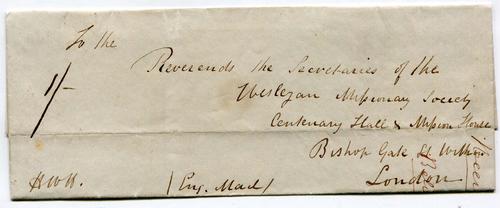 To the
Reverends the Secretaries of the
Wesleyan Missionary Society
1/-
Centenary Hall & Mission House
Bishop Gate St Within
London
H W H.
(Eng. Mail)